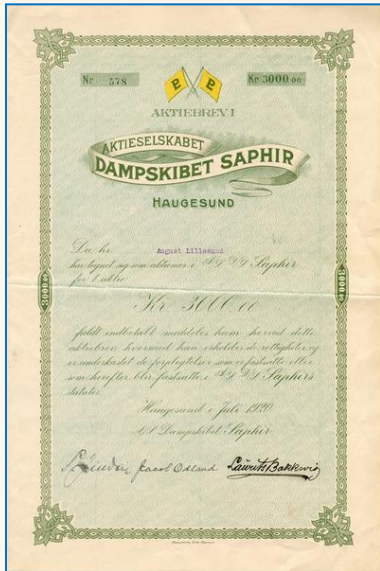 Nr 578 Kr 3000.00
AKTIEBREV I
AKTIESELSKABET
DAMPSKIBET SAPHIR
HAUGESUND
Da hr. August Lillesund
har tegnet sig som aktionær i A/S D/S Saphir
for 1 aktie
Kr. 3000.00
fuldt indbetalt meddeles ham herved dette
aktiebrev, hvormed han erholder de rettigheter og
er underkastet de forpligtelser som er fastsatte eller
som herefter blir fastsatte i A/S D/S Saphirs
statuter.
Haugesund i Juli 1920
A/S Dampskibet Saphir
Jacob Odland Laurits Bakkevig
3000.00
3000.00